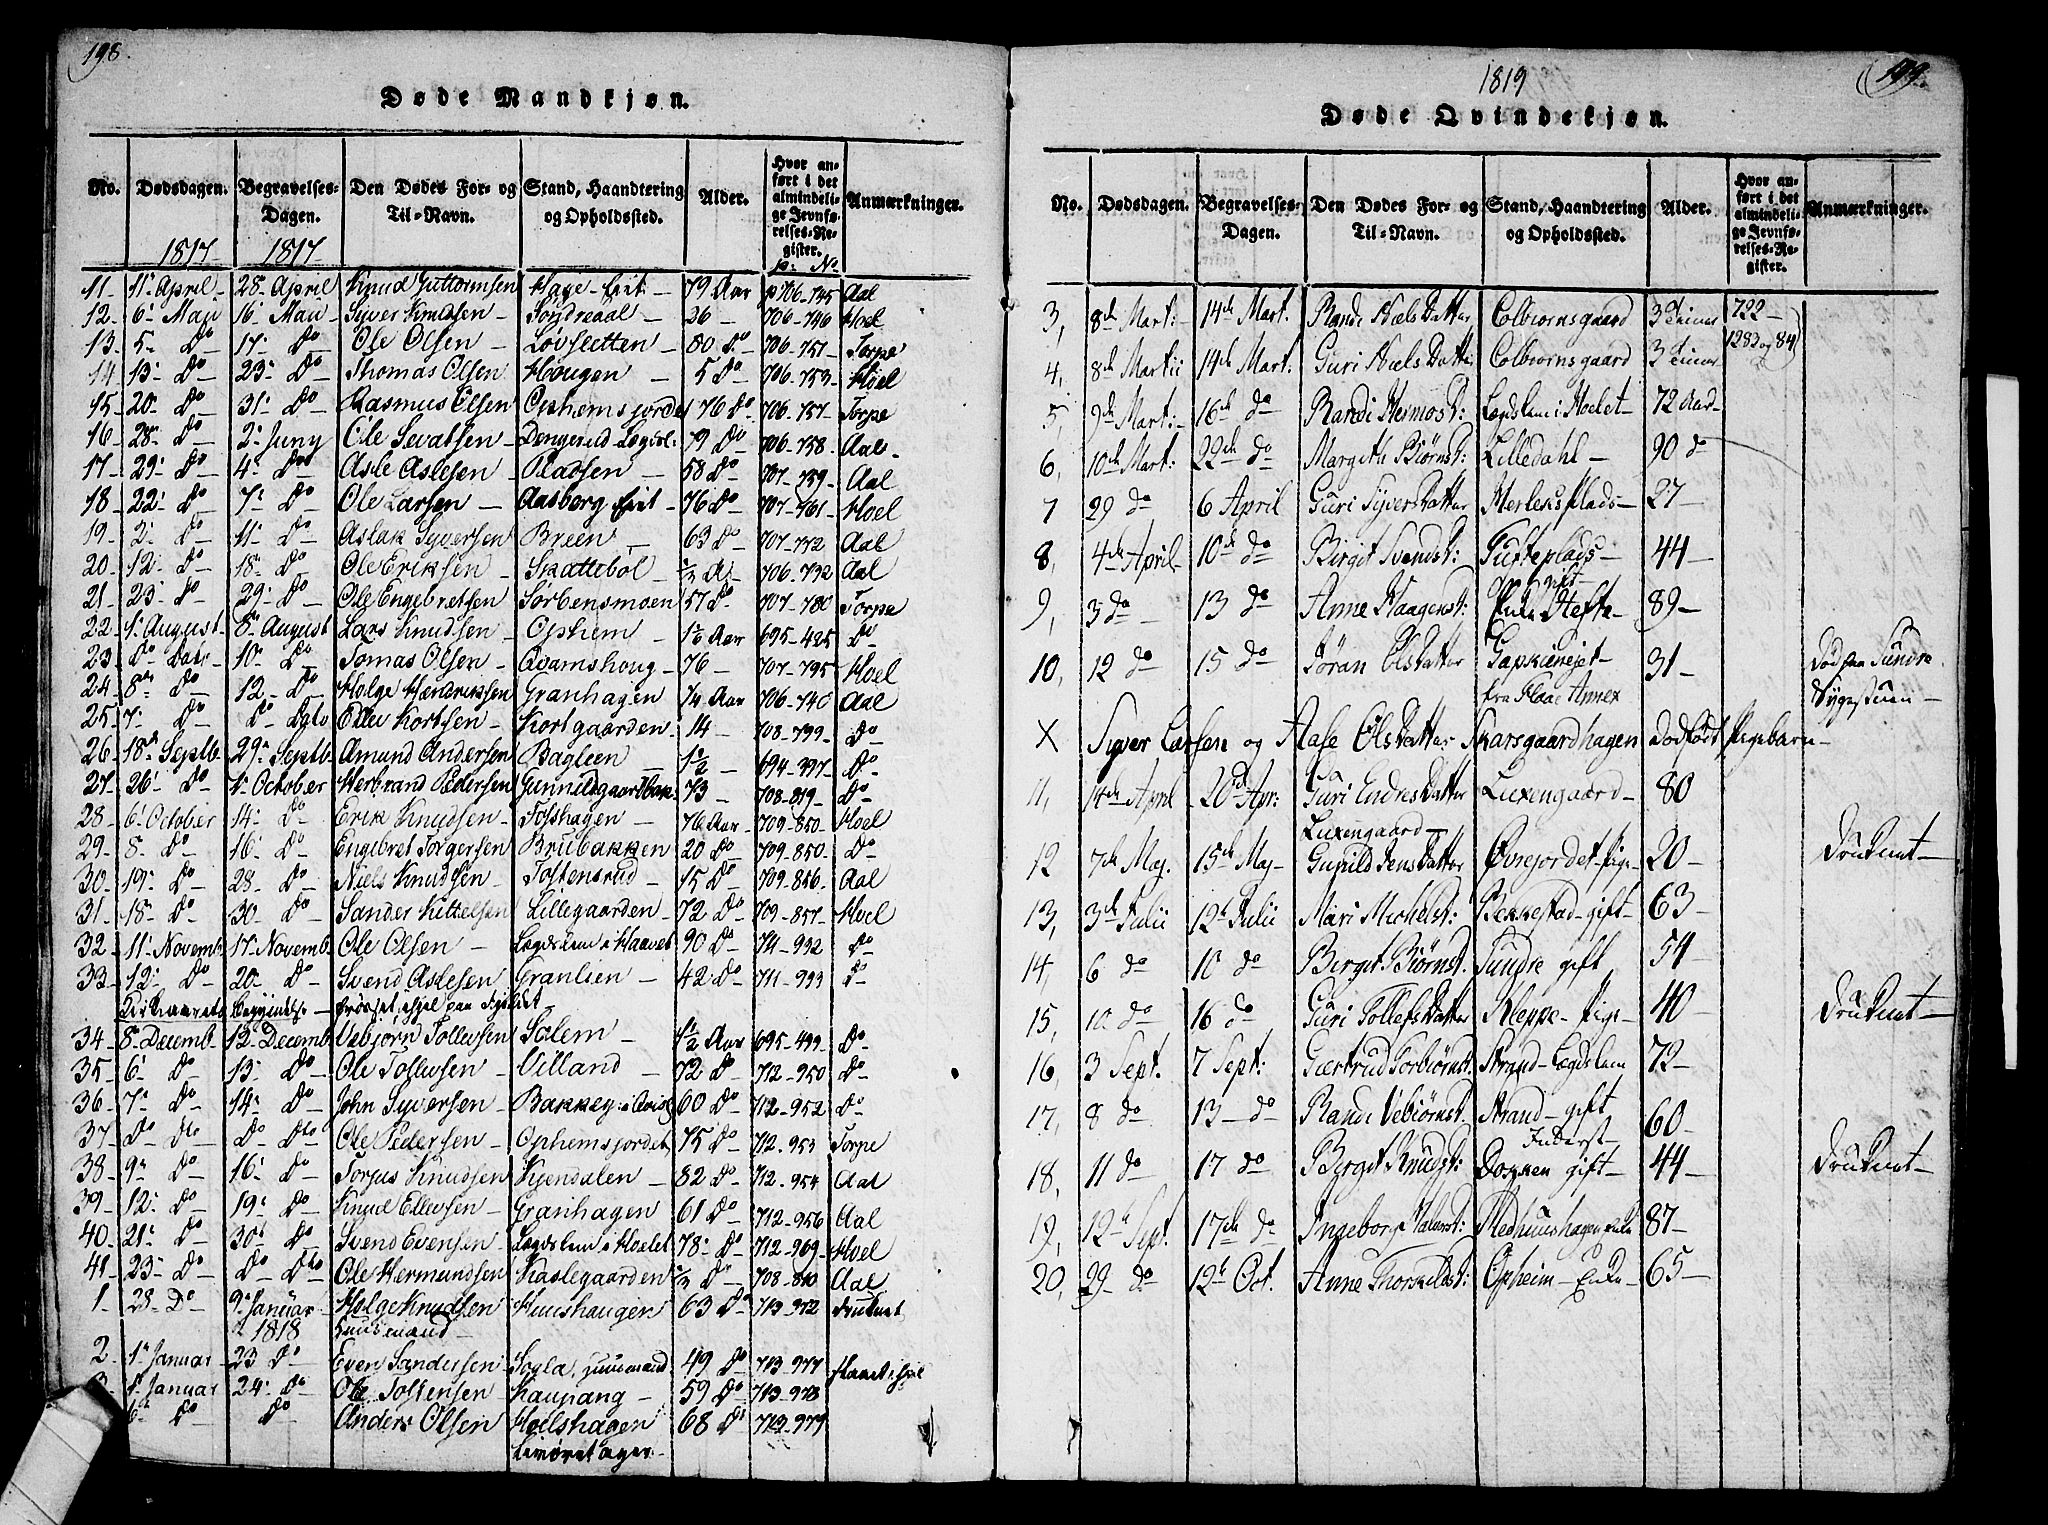 198.
Døde Mandkjøn.
No. Dødsdagen. Begravelses-Dagen. Den Dødes For- og Til-Navn. Stand, Haandtering og Opholdssted. Alder. Hvor anført i det almindelige Jevnførelses-Register. Anmærkninger.
1817 1817 p: No
11- 11- April- 28- April Knud Guttormsen Hage- 79 Aar p706-745 Aal
12- 6- Maii 16- Maii- Syver Knudsen- Sondreaal- 26- 706-746 Hoel
13- 5- Do 17- Do Ole Olsen- Løvsletten- 80 Do 706-751- Torpe
14- 13- Do 23- Do- Thomas Olsen Hougen- 5 Do 706-753- Hoel
15- 20- Do 31- Do- Rasmus Olsen Ophemsjordet 76 Do 706-757- Torpe
16- 28- Do 2- Juny Ole Sevatsen- Dengerud Lægdsl: 79 Do 706-758. Aal-
17- 29- Do 4- Do Asle Aslesen- Pladsen- 58 Do 707-759- Aal
18- 22- Do 7- Do Ole Larsen- Aasborg 76 Do- 707-761- Hoel
19- 2- Do 11- Do Aslak Syversen Breen- 63 Do 707-772 Aal
20- 12- Do 18- Do- Ole Eriksen Skattebøl- 706-732 Aal
21- 23- Do 29- Do Ole Engebretsen Torbensmoen 57 Do- 707-780 Torpe
22- 1- August- 8- August Lars Knudsen- Ophem- 1½ Aar 695-425 Do
23- Do Dato- 10- Do Tomas Olsen- Qvamshoug- 76- 707-795- Hoel
24- 8- Do 12- Do Holge Hendriksen Granhagen ¼ Aar 706-740 Aal
25- 7- Do Do Dato Ellev Kortsen- Kortgaarden- 14- 708-799- Do
26- 18- Septb- 29- Septb Amund Andersen Bagleen- 1½- 694-397- Do
27- 26- Do 1- October Herbrand Pedersen Gunnildgaardbak. 73- 708-819- Do
28- 6- October 14- Do Erik Knudsen- Tofshagen- 76 Aar- 709-850- Hoel
29- 8- Do 16- Do- Engebret Torgersen Brubakken 20 Do 709-850- Do
30- 19- Do 28- Do Niels Knudsen Tostensrud- 15 Do 709-856- Aal
31- 18- Do 30- Do Sander Kittelsen Lillegaarden- 72 Do 709-857- Hoel
32- 11- Novemb. 17- Novemb. Ole Olsen- Lægdslem i Haavet 90 Do 711-932 Do
33- 12- Do 20- Do Svend Aslesen Granlien- 42 Do 711-933 Do
Kirkaarets Begyndelse-
34- 8- Decemb- 12- Decemb Vebjørn Tollevsen Salem- 1½ Aar 695-499- Do
35- 6- Do 13- Do- Ole Tollevsen- Villand- 72 Do 712-950 Do
36- 7- Do 14- Do John Syversen- Bakkey: i 60 Do 712-952 Do
37- Do Dto Do Dto Ole Pedersen- Ophemsjordet 75 Do 712-953 Torpe
38- 9- Do 16- Do Torjus Knudsen Kyendalen- 82 Do 712-954 Aal
39- 12- Do 19- Do Knud Ellevsen- Granhagen 61 Do 712-956 Aal
40- 21- Do 30- Do Svend Evensen Lægdslem i Hoelet 78- Do 712-969- Hoel
41- 23- Do Do Dto Ole Hermundsen Kaslegaarden Do 708-810 Aal
1- 28- Do 9- Januar- Holge Knudsen Huushaugen 63 Do 713-972 druknet
1818 Huusmand-
2- 1- Januar- 23 Do Even Sandersen Sogla, huusmand 49 Do 713-977
3- 1- Januar 24- Do Ole Tostensen Kaupang- 59 Do 713-978
6- Do Do Anders Olsen Hoelshagen 68 Do 713-979

199.
1819
Døde Qvindekjøn.
No. Dødsdagen. Begravelses-Dagen. Den Dødes For- og Til-Navn. Stand, Haandtering og Opholdssted. Alder. Hvor anført i det almindelige Jevnførelses-Register. Anmærkninger.
3, 8de Mart:- 14de Mart. Randi Nielsdatter Colbiørnsgaard 3 Timer 722-
4, 8de Martii 14de Mart: Guri Nielsdatter Colbiørnsgaard 3 Timer 1282 og 84
5, 9de Mart:- 16de do Randi Hermost: Lægdslem i Hoelet- 72 Aar-
6, 10de Mart: 22de do Margith Biørnst: Lilledahl- 90 d
7 29 do 6 April Guri Syversdatter Herleksplads- 27-
8, 4de April- 10de do Birgit Svendst: Tufteplads- 44-
gift-
9, 3 do- 13 do Anne Haagenst: Enke Hefte- 89-
10, 12 do 15 do Jøran Olsdatter Gapkienejet- 31- Død paa Sundre
fra Flaae Annex Sygestuen-
X Syver Larsen og Aase Olsdatter Skarsgaardhagen dødfødt Pigebarn-
11, 14de April 20de Apr: Guri Endresdatter Luxengaard- 80
Luxengaard-
12 7de Maj. 15de Maj- Gunild Jensdatter Øvrejordet-Pige- 20- Druknet-
13, 3de Julii 12te Julii Mari Michelst: Bekkestad-gift- 63-
14, 6 do 10 do Birgit Biørnst. Sundre gift 54-
15, 10 do 16 do Guri Tollefsdatter Kleppe-Pige- 40- Druknet-
16, 3 Sept. 7 Sept: Giertrud Torbiørnst. Strand-Lægdslem 72-
17, 8 do 13- do Randi Vebiørnst. Strand-gift 60-
Inderst-
18, 11 do 17 do Birget Knudst: Dokken gift- 44- Druknet-
19, 12te Sept. 17de do Ingeborg Halvorst: Medhuushagen 87-
20, 29 do 12te Oct. Anne Thorkildst: Opheim-Enke- 65-